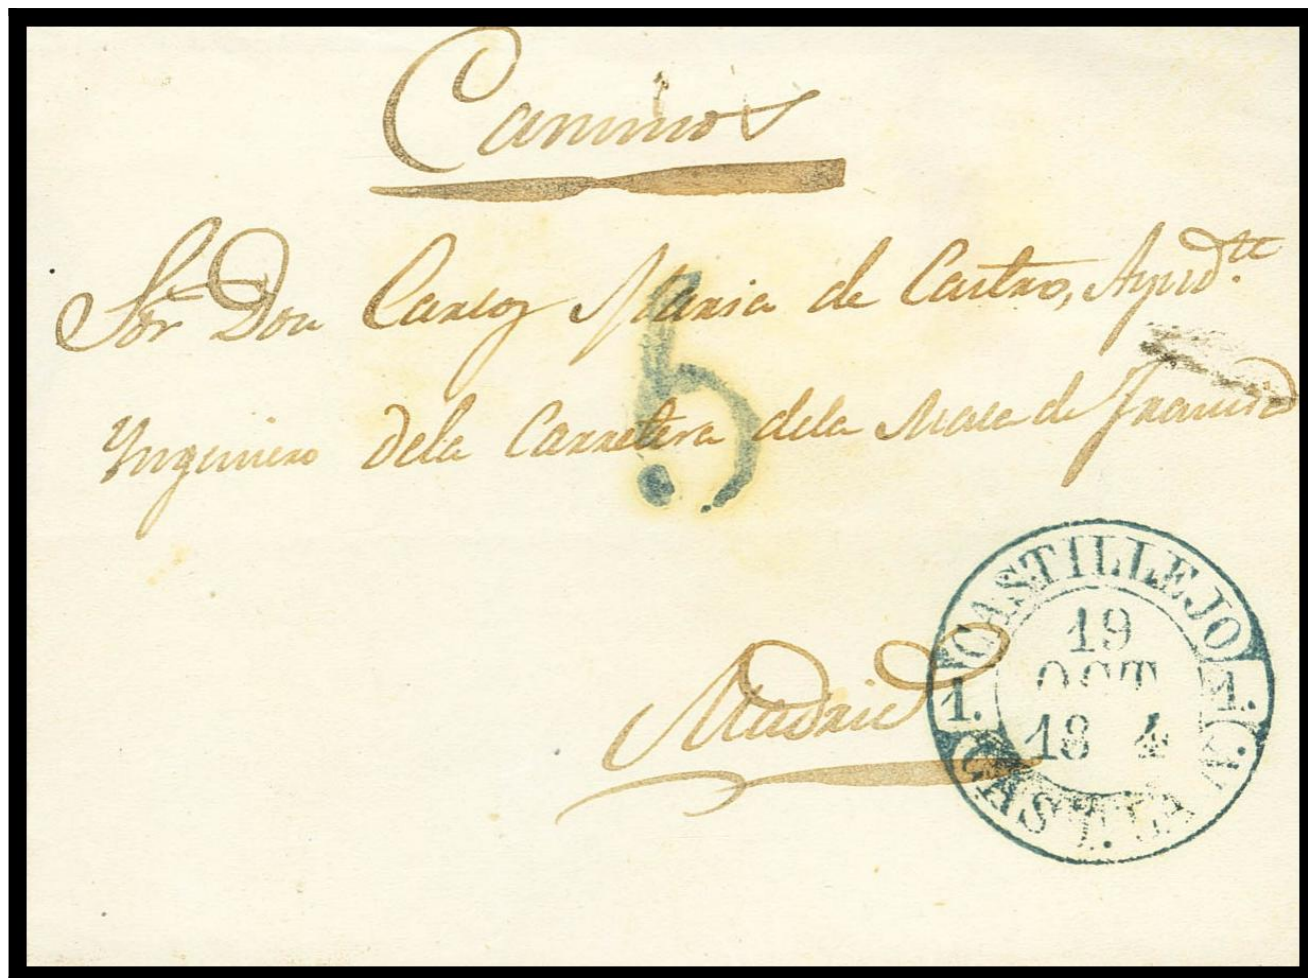 Caminos
Sor. Don Carlos Maria de Castro, Ayud.te
Yngeniero dela Carretera dela Mala de Francia
5
CASTILLEJO
19
OCT
18 4
1. 1.
Madrid